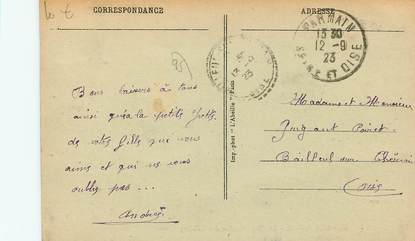 CORRESPONDANCE
ADRESSE
PARMAIN
13 30
12 - 9
23
SEINE ET OISE
12 - 9
23
95
Bons baisers à tous
ainsi qu'à la petite
de votre fille qui vous
aime et qui ne vous
oublie pas ...
Andrée
Imp.-phot. "L'Abeille" - Paris
Madame et Monsieur
Bailleul sur Thérain
Oise